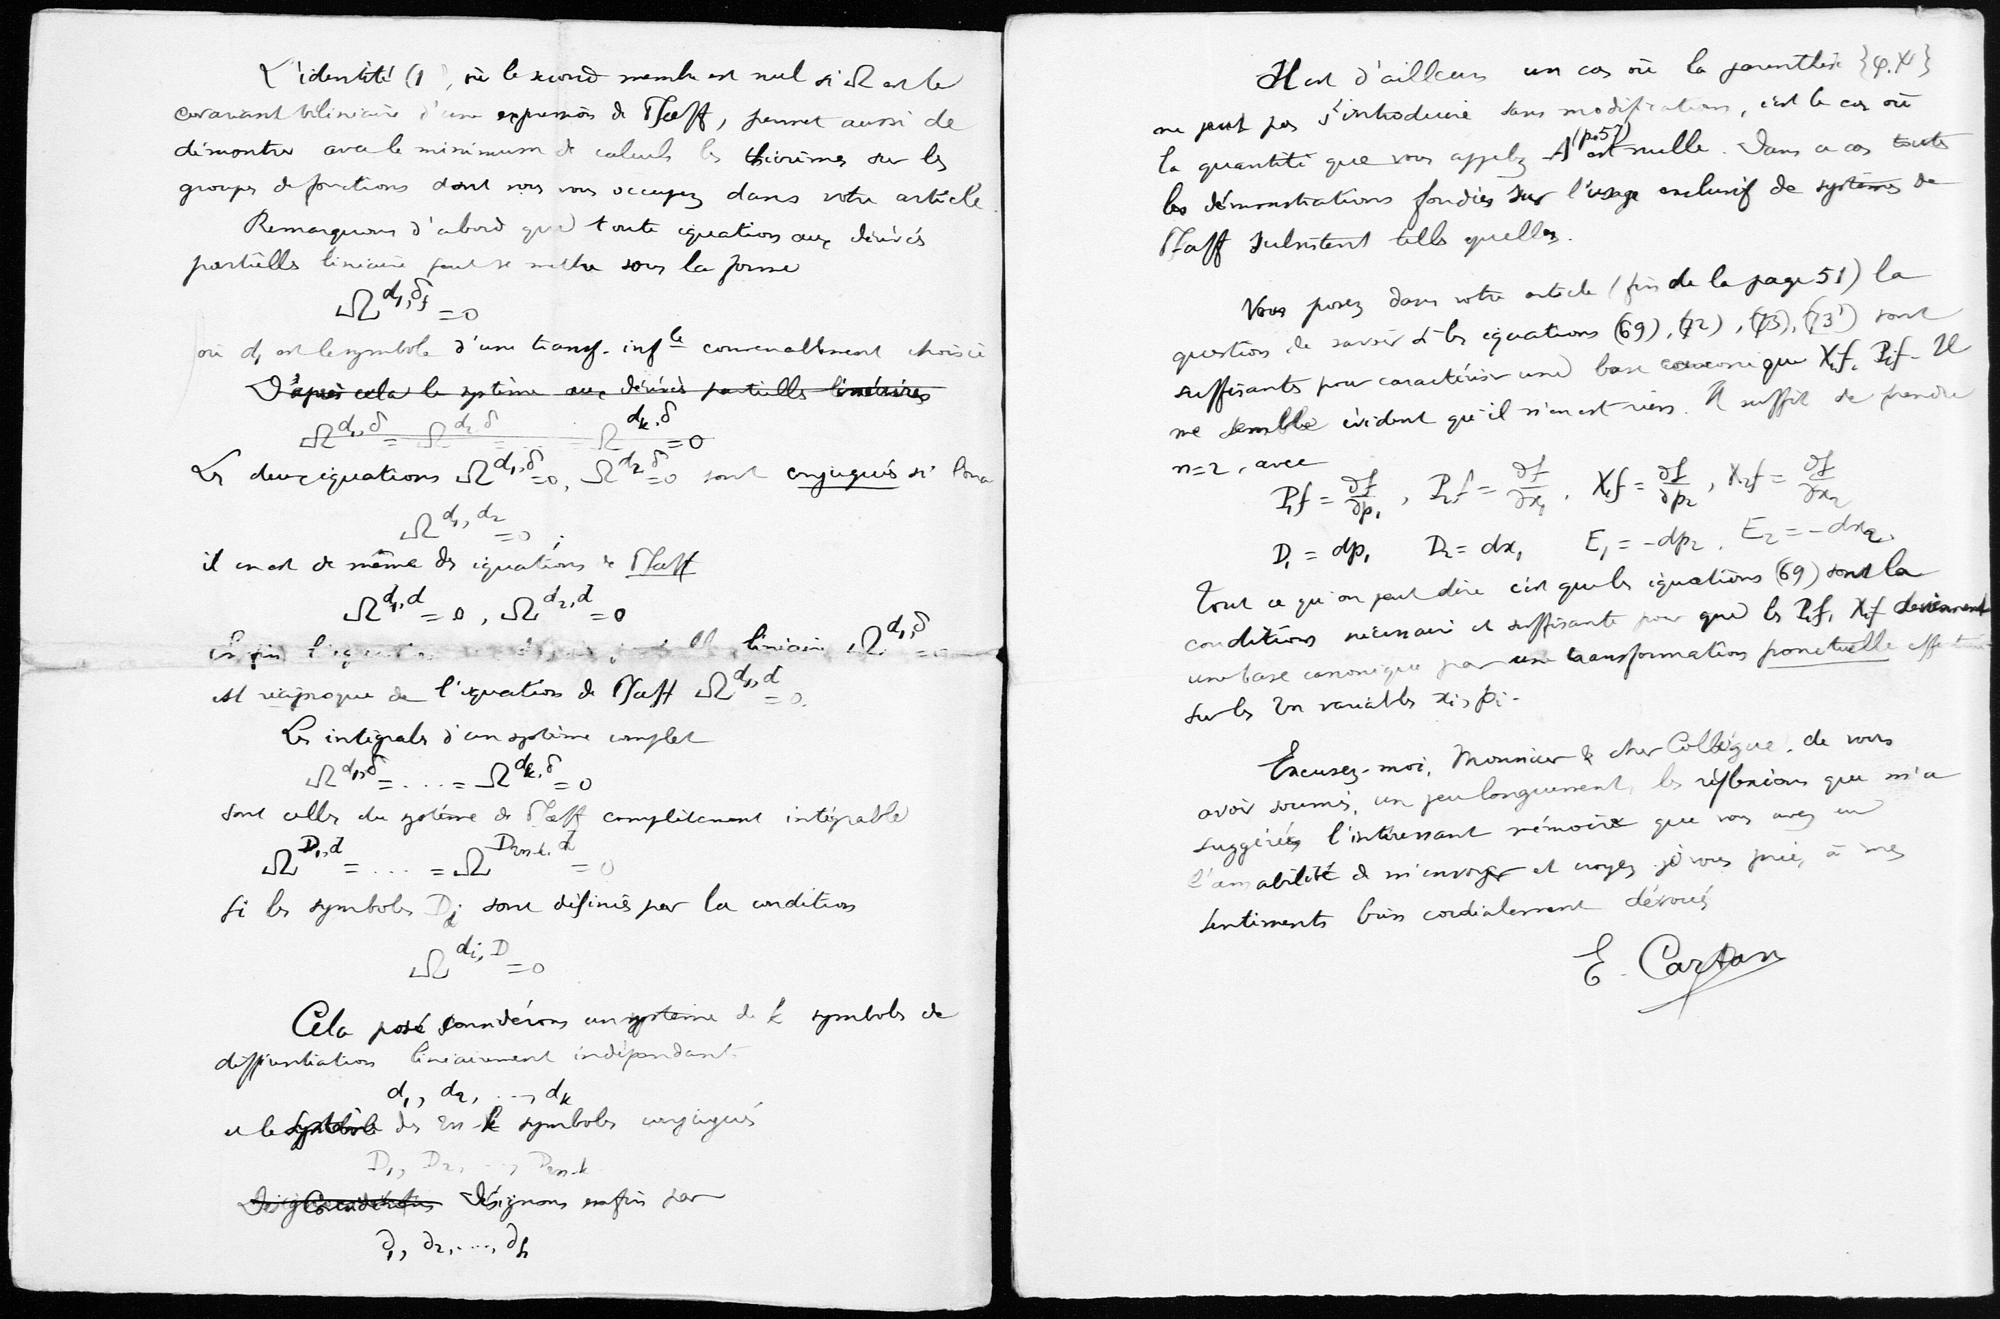 L'identité (1), où le second membre est nul si Ω est le
covariant bilinéaire d'une expression de Pfaff, permet aussi de
démontrer avec le minimum de calculs les théorèmes sur les
groupes de fonctions dont vous vous occupez dans votre article.
Remarquons d'abord que toute équation aux dérivées
partielles linéaire peut se mettre sous la forme
Ω^{d₁,δ_f} = 0
où d₁ est le symbole d'une transf. inf^{le} convenablement choisie
D'après cela le système aux dérivées partielles linéaires
Ω^{d₁,δ} = Ω^{d₂,δ} = ... = Ω^{d_k,δ} = 0
Les deux équations Ω^{d₁,δ} = 0, Ω^{d₂,δ} = 0 sont conjuguées si l'on a
Ω^{d₁,d₂} = 0.
il en est de même des équations de Pfaff
Ω^{d₁,d} = 0, Ω^{d₂,d} = 0
Enfin l'équation linéaire Ω^{d₁,δ} = 0
est réciproque de l'équation de Pfaff Ω^{d₁,d} = 0.
Les intégrales d'un système complet
Ω^{d₁,δ} = .... = Ω^{d_k,δ} = 0
sont celles du système de Pfaff complètement intégrable
Ω^{D₁,d} = .... = Ω^{D_{2n-k},d} = 0
si les symboles D_j sont définis par la condition
Ω^{d_i,D} = 0
Cela posé considérons un système de k symboles de
différentiation linéairement indépendants
d₁, d₂, ..., d_k
et le système des 2n-k symboles conjugués
D₁, D₂, ..., D_{2n-k}
Considérons Désignons enfin par
∂₁, ∂₂, ..., ∂_h
Il est d'ailleurs un cas où la parenthèse {φ.χ}
ne peut pas s'introduire sans modifications, c'est le cas où
la quantité que vous appelez A (p.57) est nulle. Dans ce cas toutes
les démonstrations fondées sur l'usage exclusif de systèmes de
Pfaff subsistent telles quelles.
Vous posez dans votre article (fin de la page 51) la
question de savoir si les équations (69), (72), (73), (73') sont
suffisantes pour caractériser une base canonique X_if, P_if. Il
me semble évident qu'il n'en est rien. Il suffit de prendre
n=2, avec
P₁f = ∂f/∂p₁, P₂f = ∂f/∂x₁, X₁f = ∂f/∂p₂, X₂f = ∂f/∂x₂
D₁ = dp₁ D₂ = dx₁ E₁ = -dp₂, E₂ = -dx₂.
Tout ce qu'on peut dire c'est que les équations (69) sont la
conditions nécessaire et suffisante pour que les P_if, X_if deviennent
une base canonique par une transformation ponctuelle effectuée
sur les 2n variables x_i, p_i.
Excusez-moi, Monsieur & cher Collègue, de vous
avoir soumis, un peu longuement, les réflexions que m'a
suggérées l'intéressant mémoire que vous avez eu
l'amabilité de m'envoyer et croyez, je vous prie, à mes
sentiments bien cordialement dévoués
E. Cartan